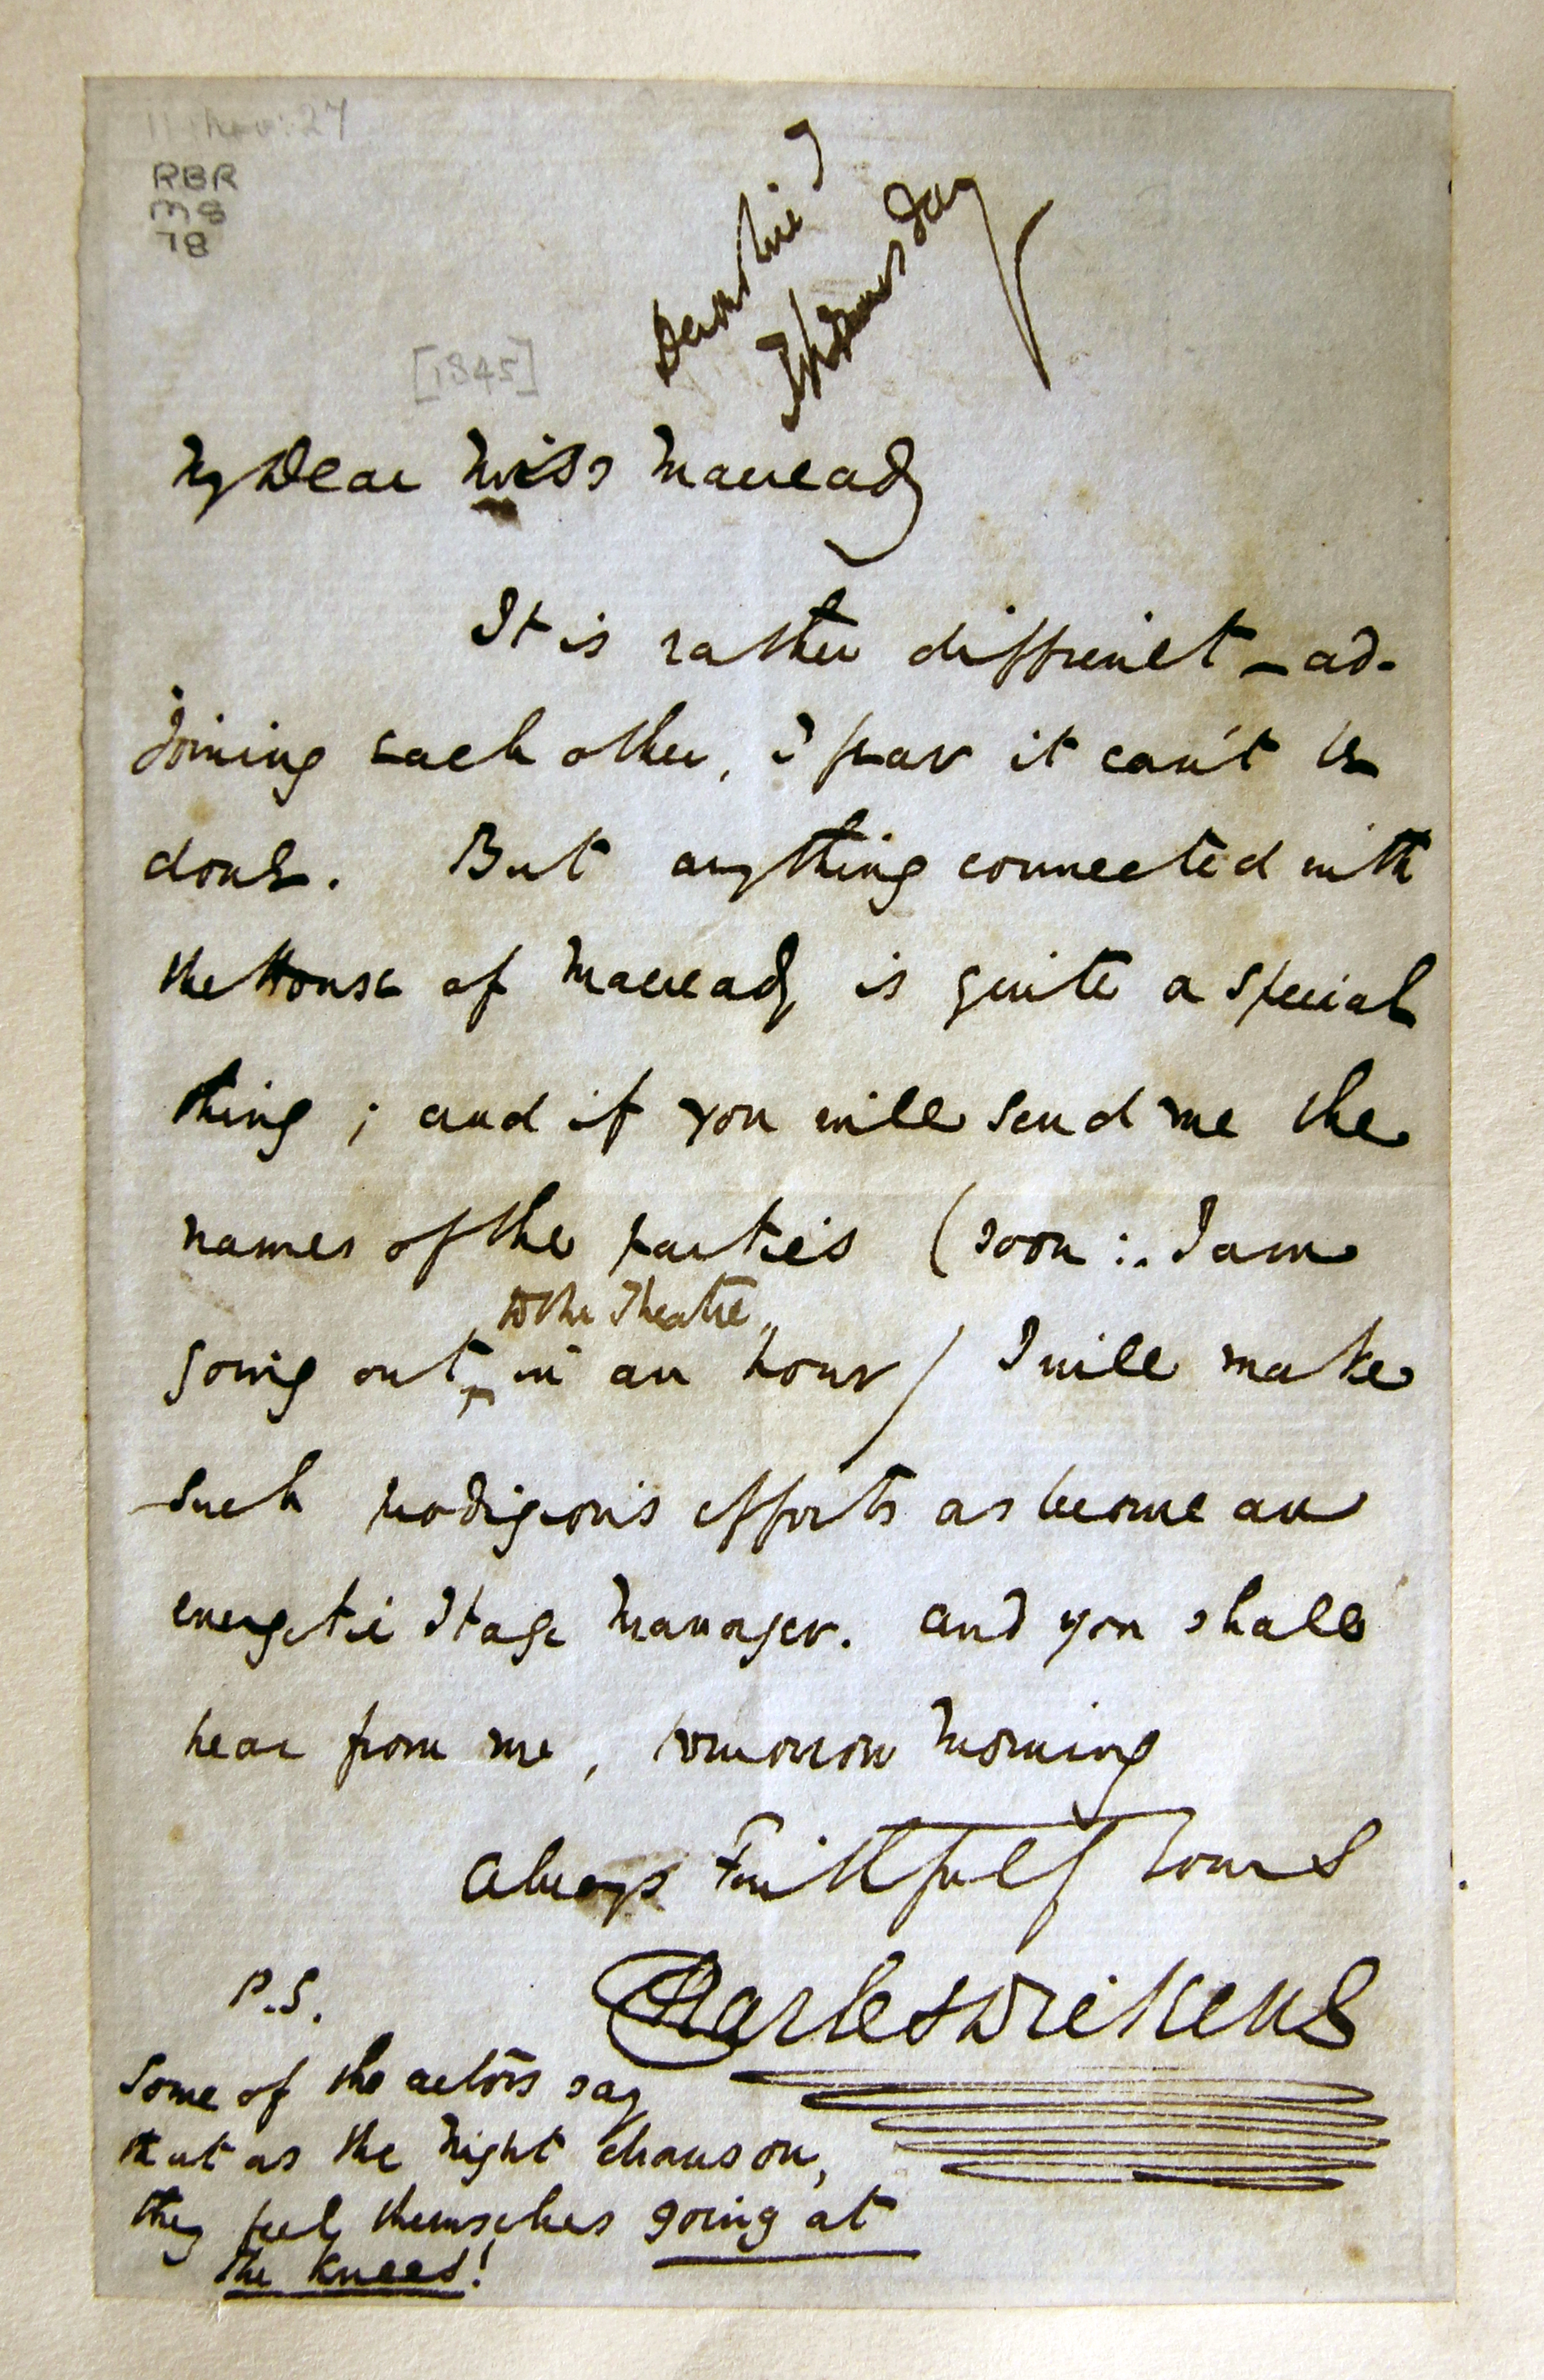 11 Nov: 27
RBR
MS
78
Devonshire
Thursday
[1845]
My Dear Miss Macready
It is rather difficult – ad-
joining each other, I fear it can't be
done. But anything connected with
the House of Macready is quite a special
thing; and if you will send me the
names of the parties (soon :. I am
to the Theatre
going out ^ in an hour) I will make
such prodigious efforts as become an
energetic Stage Manager. And you shall
hear from me, tomorrow Morning
Always Faithfully Yours
Charles Dickens
P.S.
Some of the actors say
that as the Night draws on,
they feel themselves going at
the knees!